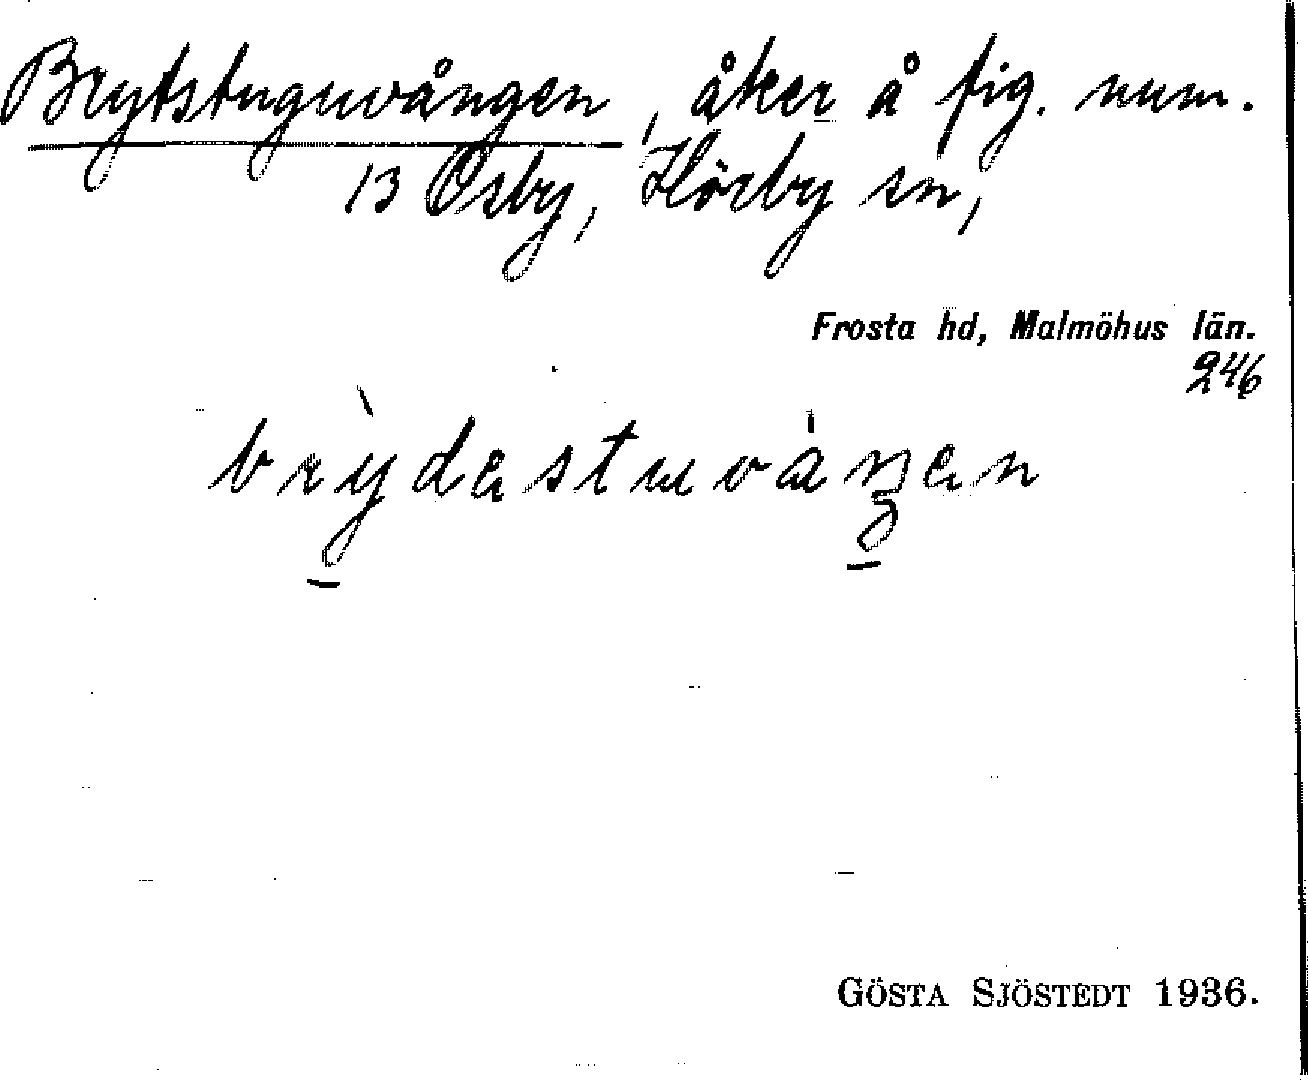 Brytstuguvången, åker å fig. num.
13 Osby, Hörby sn,
Frosta hd, Malmöhus län.
246
brỳdastuváŋen
GÖSTA SJÖSTEDT 1936.